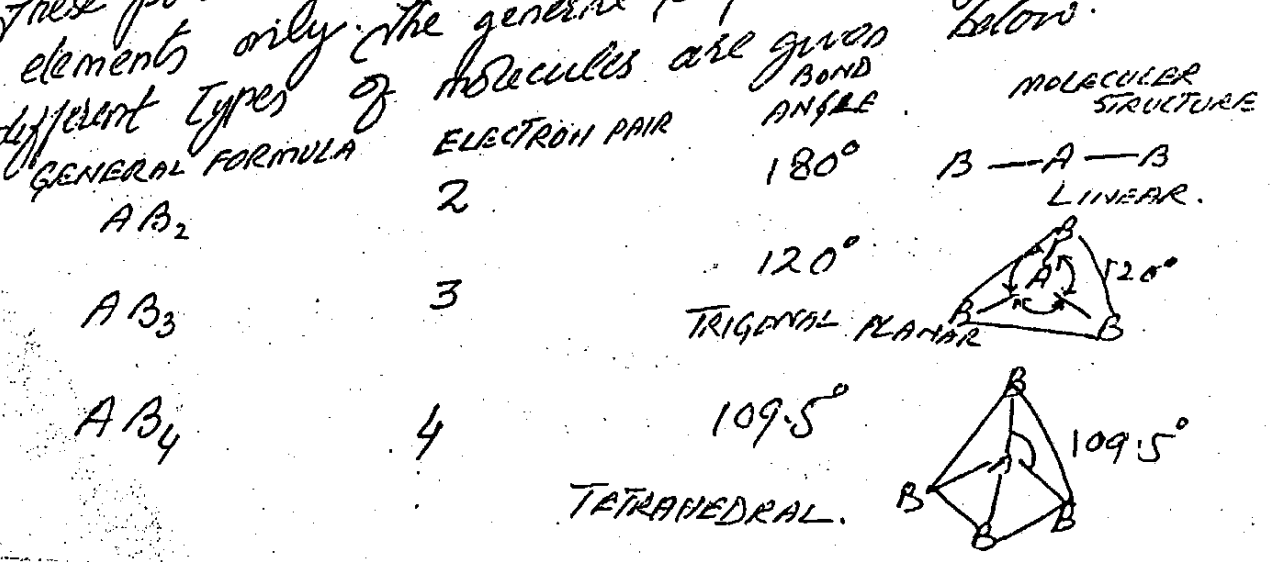 These
elements only. The general
different Types of molecules are given below.
GENERAL FORMULA ELECTRON PAIR BOND ANGLE. MOLECULER STRUCTURE
AB2 2 180° B — A — B
LINEAR.
AB3 3 120° B A B B 120°
TRIGONAL PLANAR
AB4 4 109.5° B A B B B 109.5°
TETRAHEDRAL.